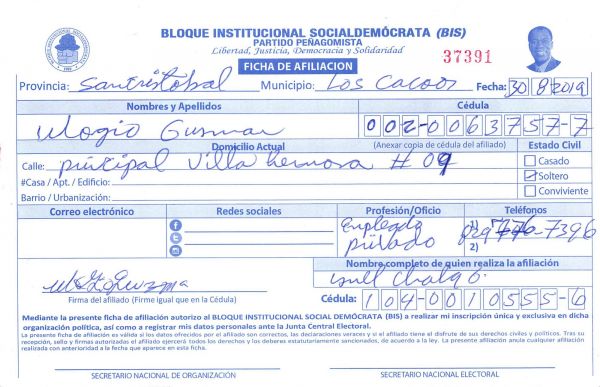 BLOQUE INSTITUCIONAL SOCIALDEMÓCRATA (BIS)
PARTIDO PEÑAGOMISTA
Libertad, Justicia, Democracia y Solidaridad
37391
FICHA DE AFILIACION
Provincia: Sancristobal Municipio: Los Cacaos Fecha: 30/8/2019
Nombres y Apellidos Cédula
Ulogio Gusman 002-0063757-7
Domicilio Actual (Anexar copia de cédula del afiliado) Estado Civil
Calle: principal Villa hermosa # 09 Casado
#Casa / Apt. / Edificio: Soltero
Barrio / Urbanización: Conviviente
Correo electrónico Redes sociales Profesión/Oficio Teléfonos
Enpleado 1) -7396
privado 2)
Nombre completo de quien realiza la afiliación
Firma del afiliado (Firme igual que en la Cédula)
Cédula: 104-0010555-6
Mediante la presente ficha de afiliación autorizo al BLOQUE INSTITUCIONAL SOCIAL DEMÓCRATA (BIS) a realizar mi inscripción única y exclusiva en dicha
organización política, así como a registrar mis datos personales ante la Junta Central Electoral.
La presente ficha de afiliación es válida si los datos ofrecidos por el afiliado son correctos, las declaraciones veraces y si el afiliado tiene el disfrute de sus derechos civiles y políticos. Tras su
recepción, sello y firmas autorizadas el afiliado ejercerá todos los derechos y los deberes estatutariamente sancionados, de acuerdo a la ley. La presente afiliación anula cualquier afiliación
realizada con anterioridad a la fecha que aparece en esta ficha.
SECRETARIO NACIONAL DE ORGANIZACIÓN SECRETARIO NACIONAL ELECTORAL